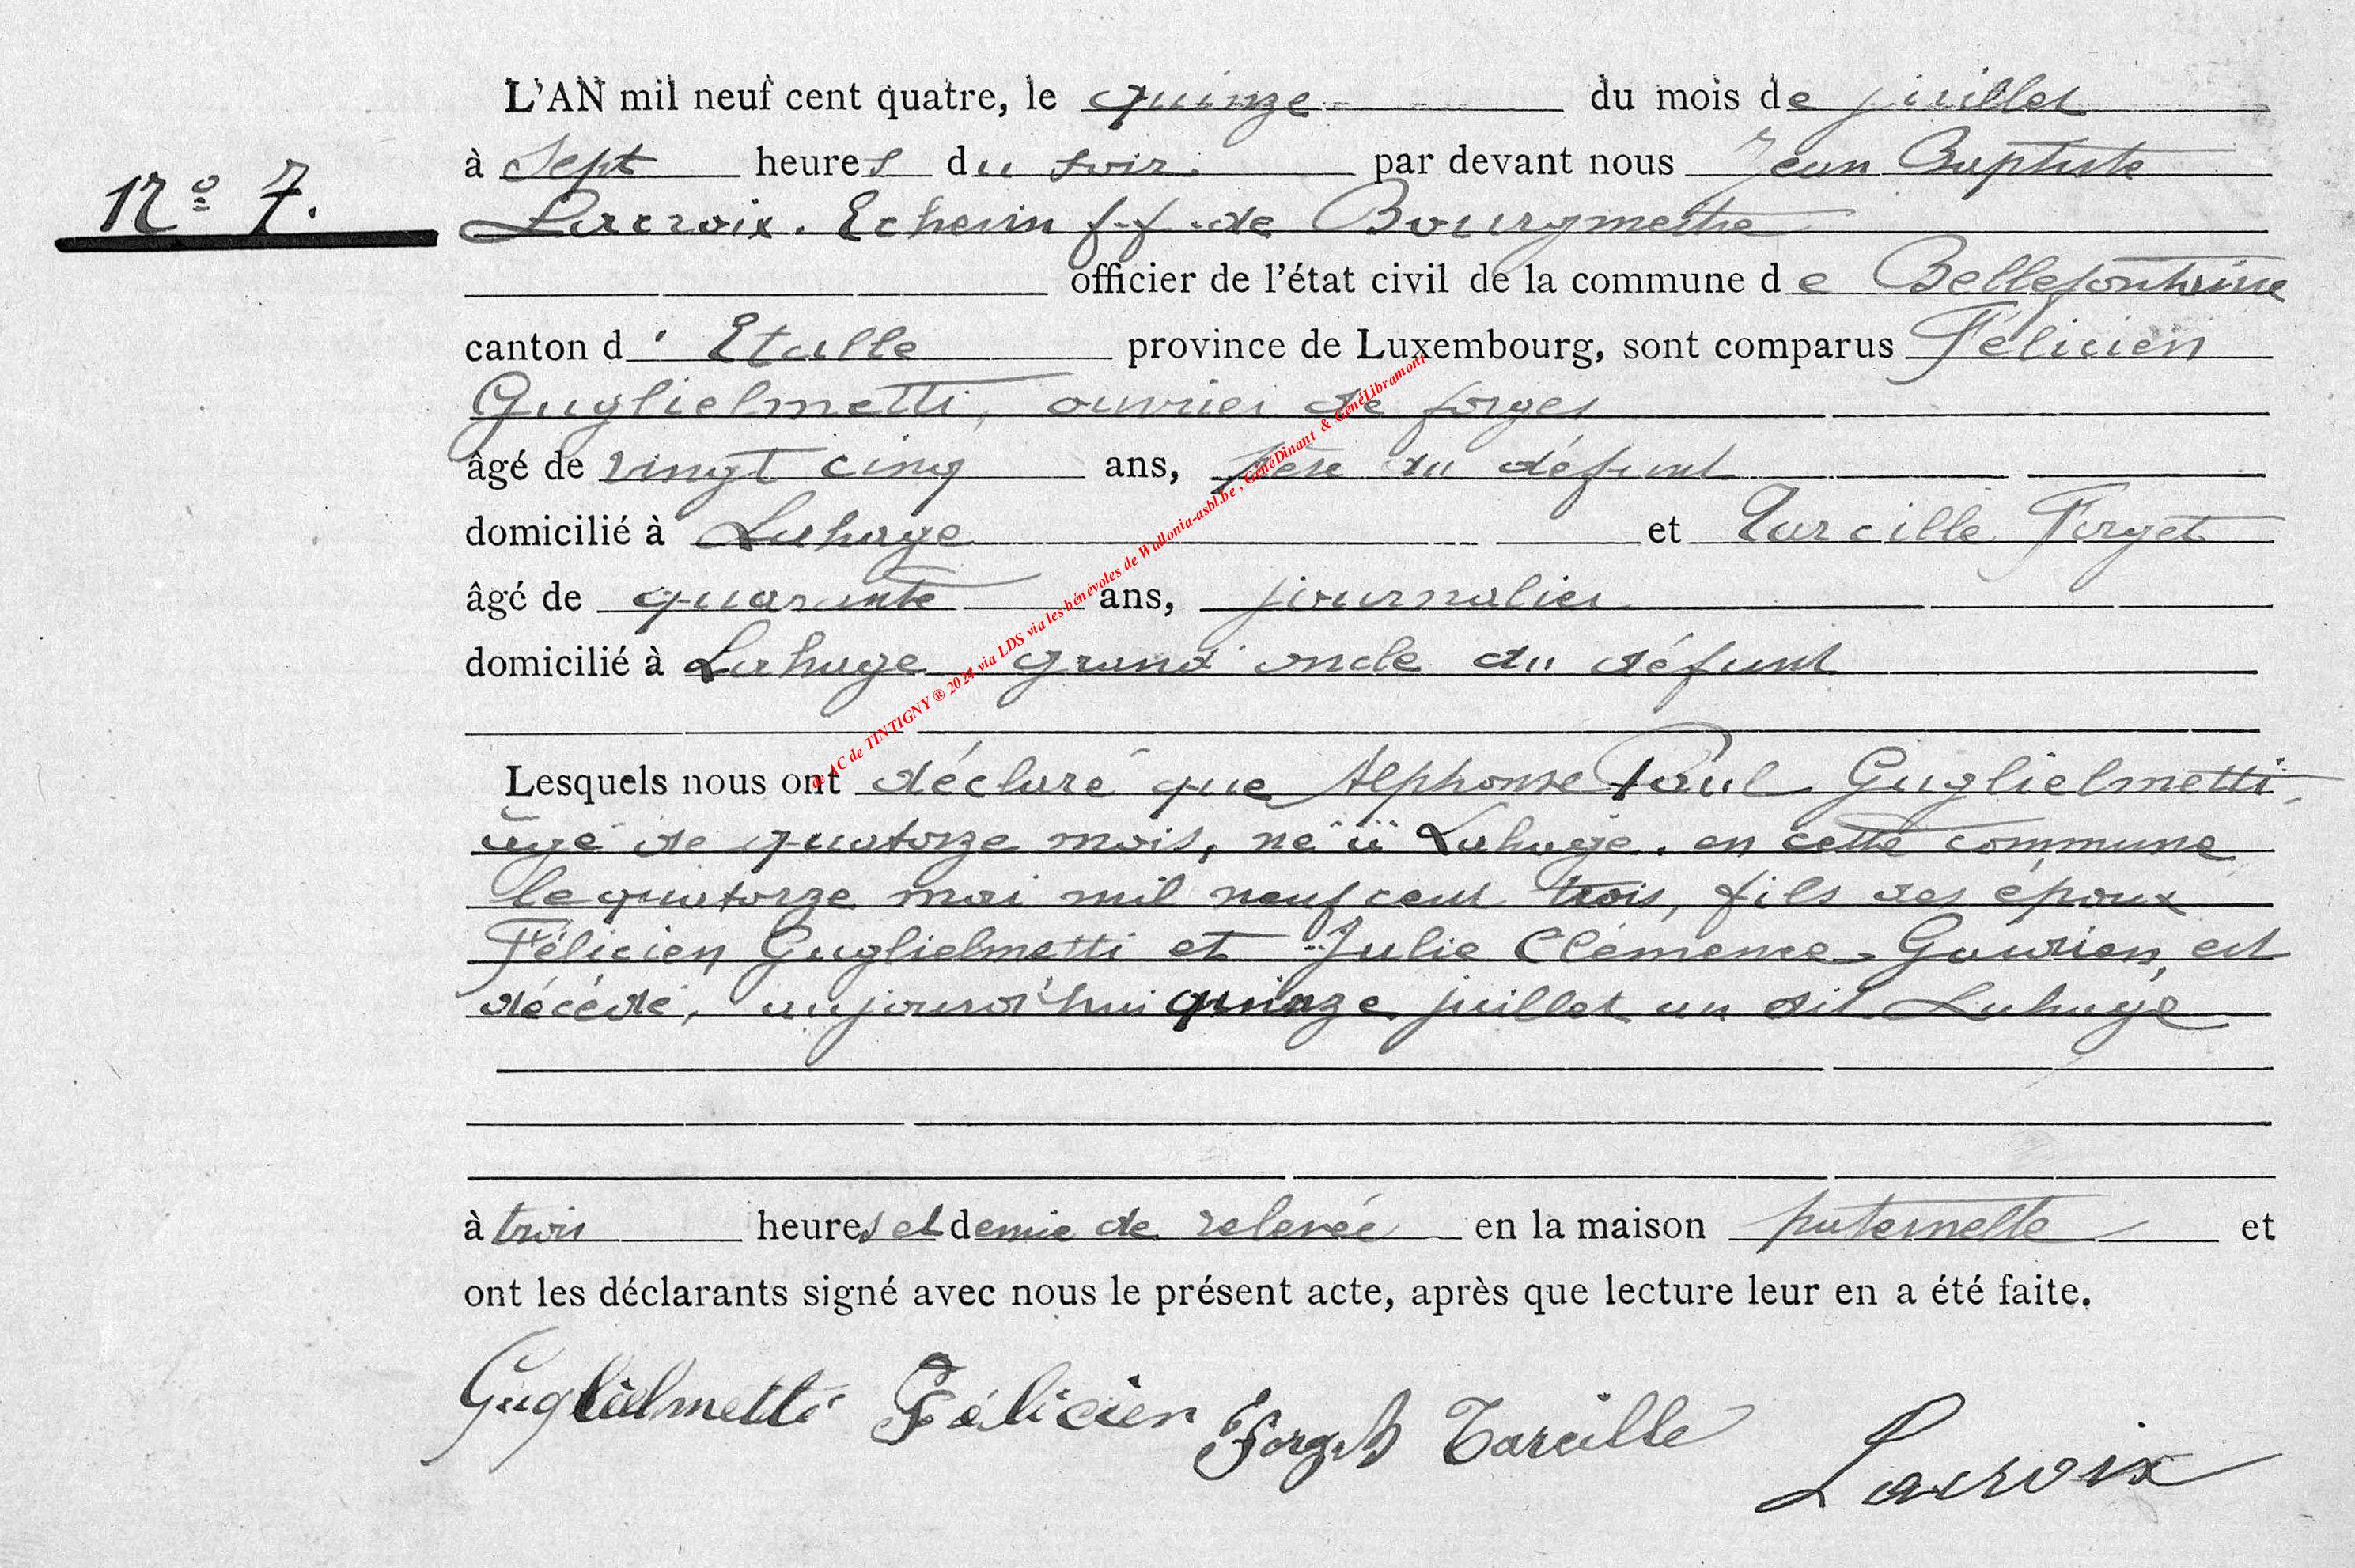 L'AN mil neuf cent quatre, le quinze du mois de juillet
à sept heures du soir par devant nous Jean Baptiste
N° 7.
Lacroix. Echevin f.f. de Bourgmestre
officier de l'état civil de la commune de Bellefontaine
canton d'Etalle province de Luxembourg, sont comparus Félicien
Guglielmetti, ouvrier de forges
âgé de vingt cinq ans, père du défunt
domicilié à Lahage et Tarcille Forget
âgé de quarante ans, journalier
domicilié à Lahage grand oncle du défunt
Lesquels nous ont déclaré que Alphonse Paul Guglielmetti,
âgé de quatorze mois, né à Lahage, en cette commune
le quatorze mai mil neuf cent trois, fils des époux
Félicien Guglielmetti et Julie Clémence Gavroien, est
décédé, aujourd'hui quinze juillet au dit Lahage
à trois heures et demie de relevée en la maison paternelle et
ont les déclarants signé avec nous le présent acte, après que lecture leur en a été faite.
Guglielmetti Félicien Forget Tarcille
Lacroix
de AC de TINTIGNY ® 2024 via LDS via les bénévoles de Wallonia-asbl.be, GénéDinant & GénéLibramont